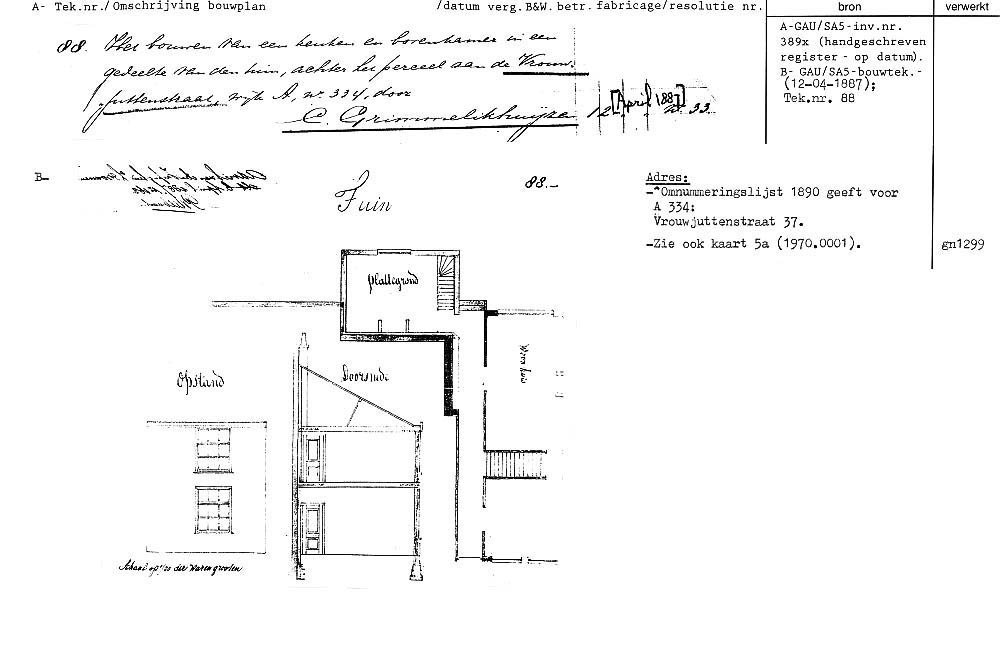 A- Tek.nr./Omschrijving bouwplan /datum verg.B&W.betr.fabricage/resolutie nr. bron verwerkt
88. Het bouwen van een keuken en bovenkamer in een
gedeelte van den tuin, achter het perceel aan de Vrouw-
juttenstraat, wijk A, nº 334, door
C. Grimmelikhuijse 12 [April 1887] nº 33.
A-GAU/SA5-inv.nr.
389x (handgeschreven
register - op datum).
B- GAU/SA5-bouwtek.-
(12-04-1887);
Tek.nr. 88
B-
88.-
Tuin
Adres:
-*Omnummeringslijst 1890 geeft voor
A 334:
Vrouwjuttenstraat 37.
-Zie ook kaart 5a (1970.0001). gn1299
plattegrond
Woonhuis
Opstand
Doorsnede
Schaal op 1/20 der ware grootte